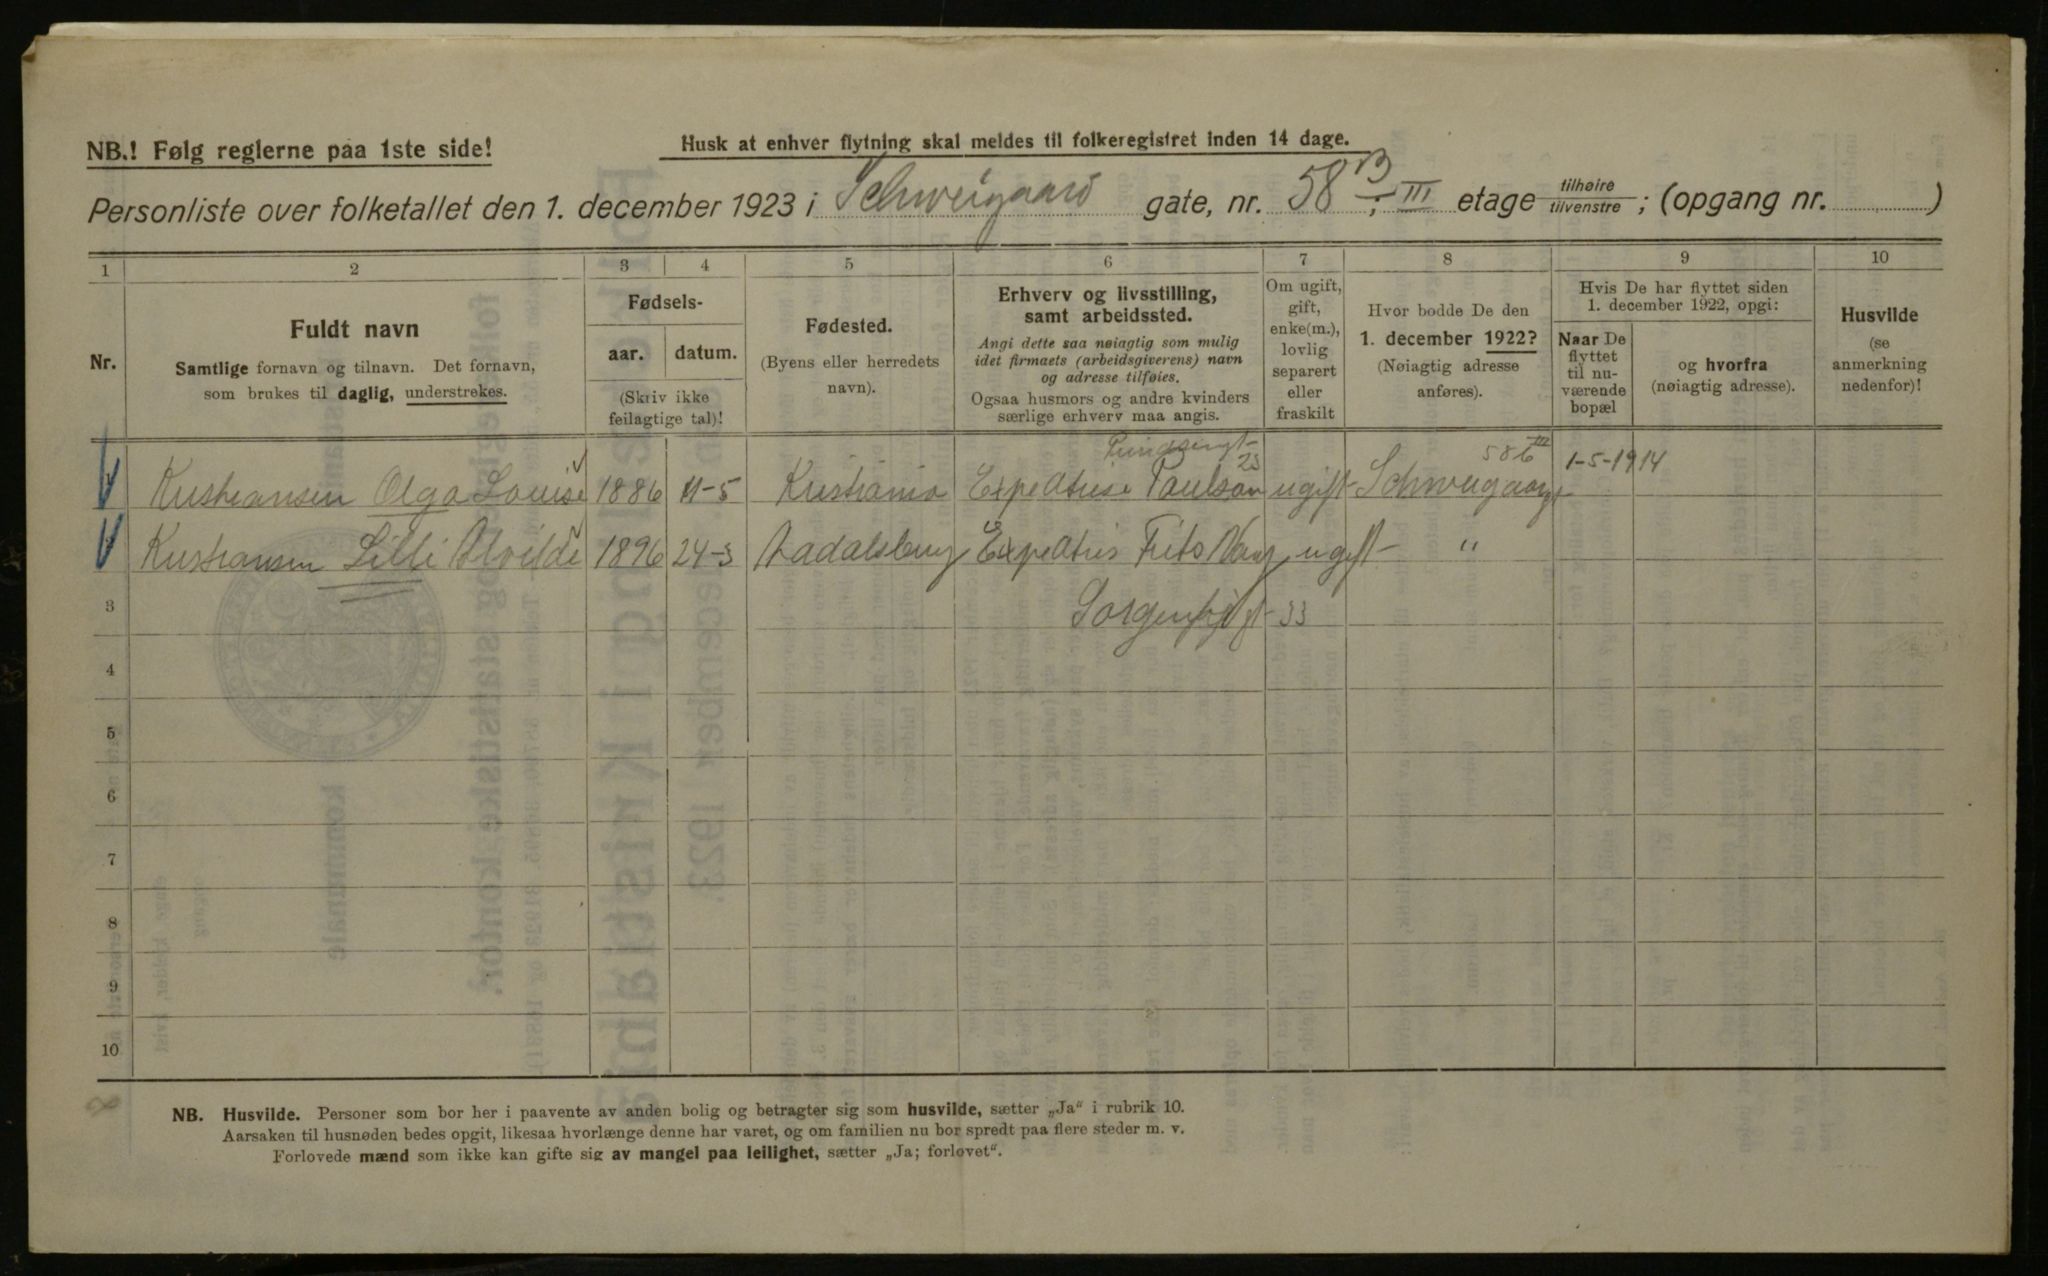 NB.! Følg reglerne paa 1ste side!
Husk at enhver flytning skal meldes til folkeregistret inden 14 dage.
Personliste over folketallet den 1. december 1923 i Schweigaard gate, nr. 58 B; III etage tilhøire tilvenstre; (opgang nr. )
1 2 3 4 5 6 7 8 9 10
Nr.
Fuldt navn
Samtlige fornavn og tilnavn. Det fornavn,
som brukes til daglig, understrekes.
Fødsels-
aar. datum.
(Skriv ikke
feilagtige tal)!
Fødested.
(Byens eller herredets
navn).
Erhverv og livsstilling,
samt arbeidssted.
Angi dette saa nøiagtig som mulig
idet firmaets (arbeidsgiverens) navn
og adresse tilføies.
Ogsaa husmors og andre kvinders
særlige erhverv maa angis.
Om ugift,
gift,
enke(m.),
lovlig
separert
eller
fraskilt
Hvor bodde De den
1. december 1922?
(Nøiagtig adresse
anføres).
Hvis De har flyttet siden
1. december 1922, opgi:
Naar De
flyttet
til nu-
værende
bopæl
og hvorfra
(nøiagtig adresse).
Husvilde
(se
anmerkning
nedenfor)!
23 58b III
Kristiansen Olga Louise 1886 11-5 Kristiania Expeditrise Paulson ugift Schweigaardgt 1-5-1914
Kristiansen Lilli Alvilde 1896 24-3 Aadalsbrug Expeditris Frits Vang ugift "
Sorgenfrigt 33
3
4
5
6
7
8
9
10
NB. Husvilde. Personer som bor her i paavente av anden bolig og betragter sig som husvilde, sætter „Ja“ i rubrik 10.
Aarsaken til husnøden bedes opgit, likesaa hvorlænge denne har varet, og om familien nu bor spredt paa flere steder m. v.
Forlovede mænd som ikke kan gifte sig av mangel paa leilighet, sætter „Ja; forlovet“.